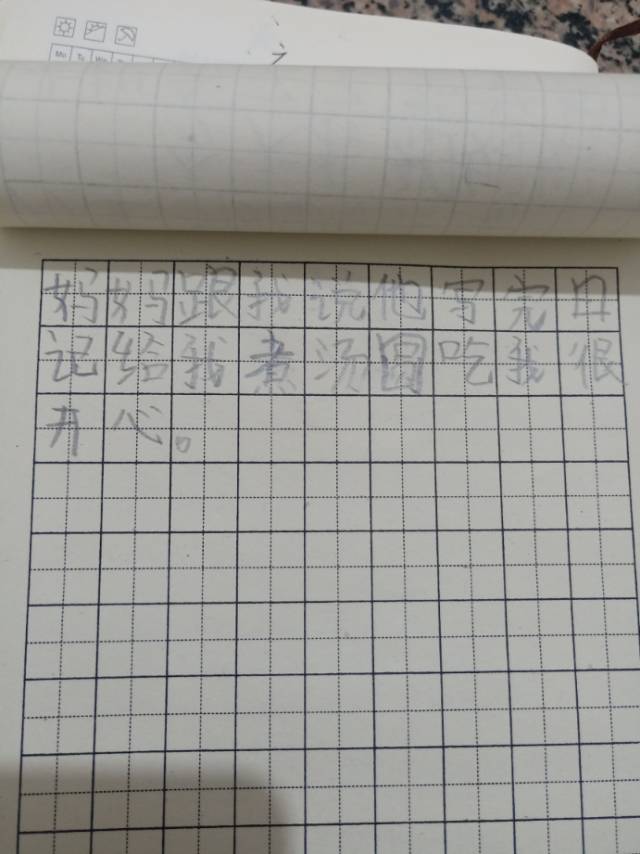 Mo Tu We
妈妈跟我说他写完日
记给我煮汤圆吃我很
开心。